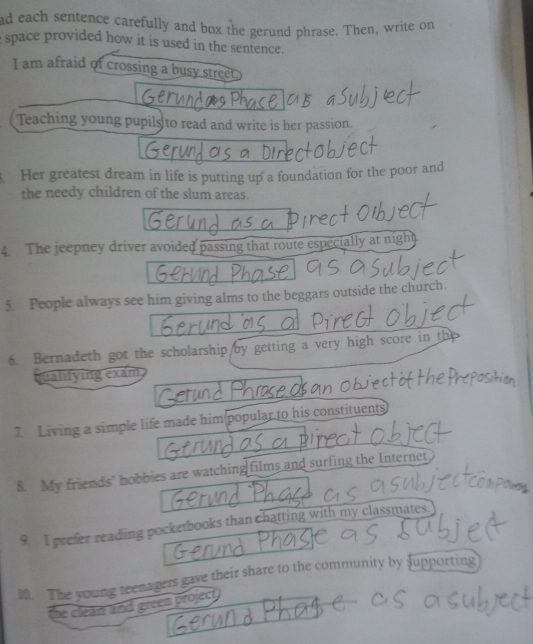 ad each sentence carefully and box the gerund phrase. Then, write on
space provided how it is used in the sentence.
I am afraid of crossing a busy street.
Gerund as Phase as a subject
Teaching young pupils to read and write is her passion.
Gerund as a Direct object
3. Her greatest dream in life is putting up a foundation for the poor and
the needy children of the slum areas.
Gerund as a Direct Object
4. The jeepney driver avoided passing that route especially at night.
Gerund Phase as a subject
5. People always see him giving alms to the beggars outside the church.
Gerund as a Direct object
6. Bernadeth got the scholarship by getting a very high score in the
qualifying exam.
Gerund Phrase as an object of the Preposition
7. Living a simple life made him popular to his constituents.
Gerund as a Direct object
8. My friends' hobbies are watching films and surfing the Internet.
Gerund Phase as a subject
9. I prefer reading pocketbooks than chatting with my classmates.
Gerund Phase as subject
10. The young teenagers gave their share to the community by supporting
the clean and green project.
Gerund Phase as a subject